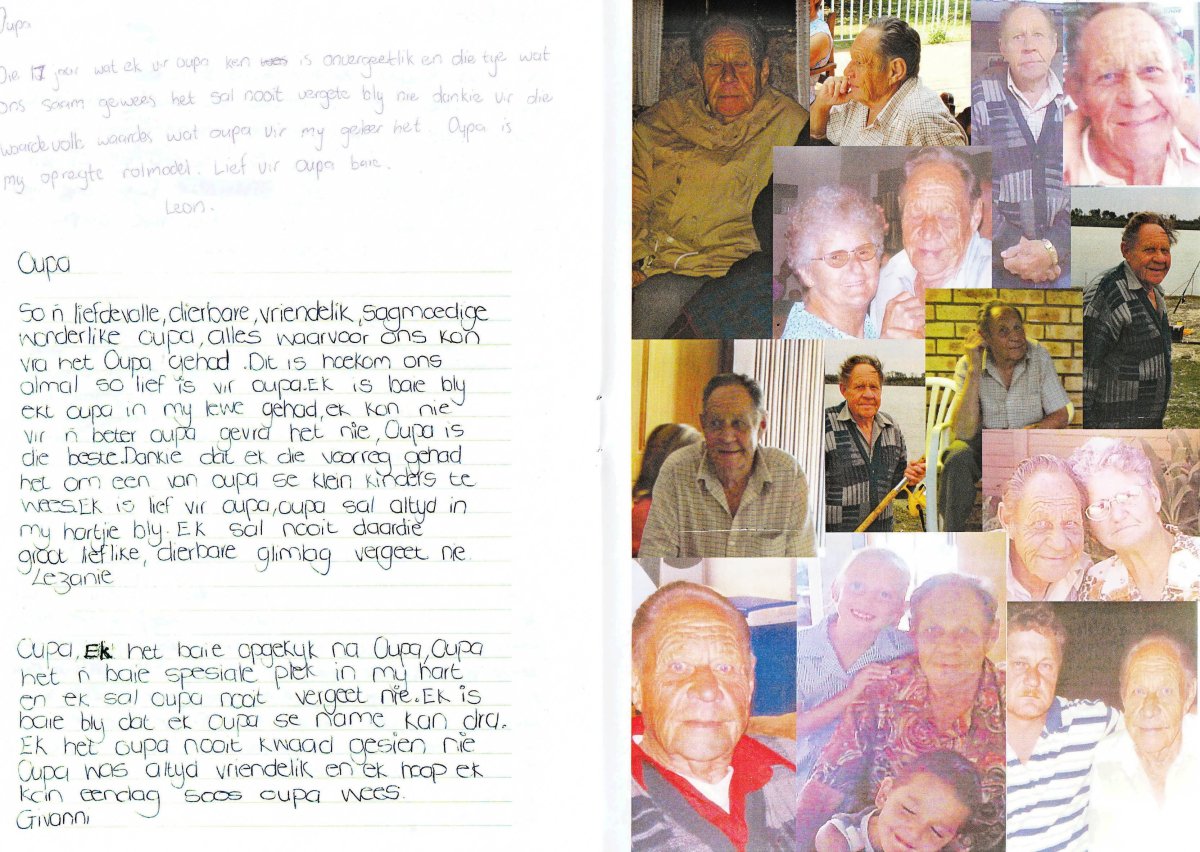 Oupa
Die 17 jaar wat ek vir oupa ken is onvergeetlik en die tye wat
ons saam gewees het sal nooit vergete bly nie dankie vir die
waardevolle waardes wat oupa vir my geleer het. Oupa is
my opregte rolmodel. Lief vir oupa baie.
Leon.
Oupa
So ń liefdevolle, dierbare, vriendelik, sagmoedige
wonderlike oupa, alles waarvoor ons kon
vra het Oupa gehad. Dit is hoekom ons
almal so lief is vir oupa. Ek is baie bly
ekt oupa in my lewe gehad, ek kon nie
vir ń beter oupa gevra het nie, Oupa is
die beste. Dankie dat ek die voorreg gehad
het om een van oupa se klein kinders te
wees. Ek is lief vir oupa, oupa sal altyd in
my hartjie bly. Ek sal nooit daardie
groot lieflike, dierbare glimlag vergeet nie
Lezanie
Oupa, Ek het baie opgekyk na Oupa, Oupa
het ń baie spesiale plek in my hart
en ek sal oupa nooit vergeet nie. Ek is
baie bly dat ek oupa se name kan dra.
Ek het oupa nooit kwaad gesien nie
Oupa was altyd vriendelik en ek hoop ek
kan eendag soos oupa wees.
Givanni